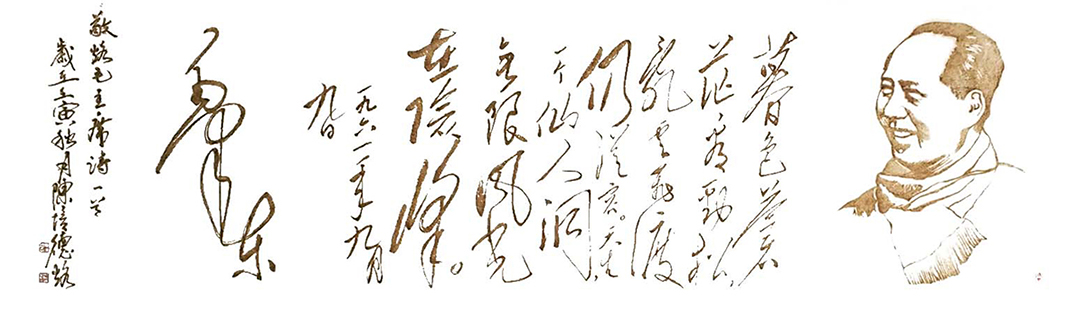 暮色苍
茫看劲松
乱云飞渡
仍從容。天生
一个仙人洞
无限风光
在险峰。
一九六一年九月
九日
毛泽东
敬烙毛主席诗一首
歲在壬寅月陳培德烙